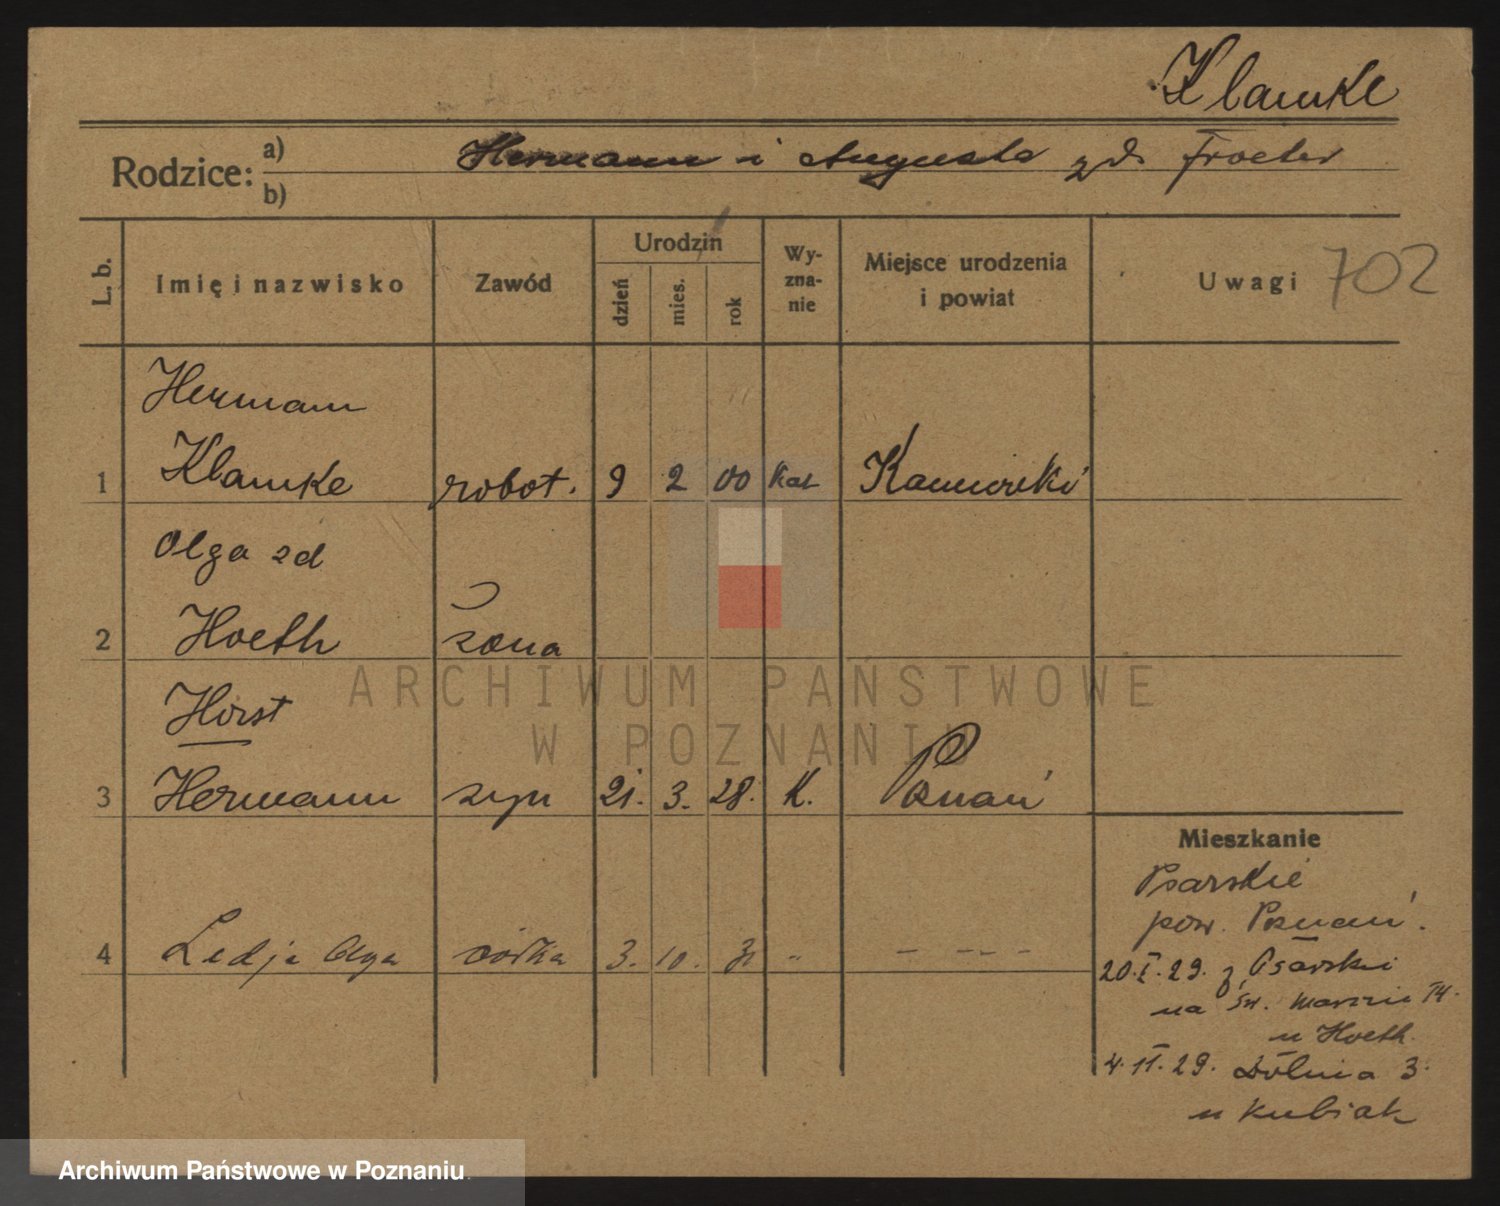 Klamke
Rodzice: a) Hermann i Augusta zd. Froeter
b)
L. b. Imię i nazwisko Zawód Urodzin dzień mies. rok Wyznanie Miejsce urodzenia i powiat Uwagi 702
Hermann
1 Klamke robot. 9 2 00 Kat
Olga zd
2 Hoeth żona
Horst
3 Hermann syn 21. 3. 28. K. Poznań
Mieszkanie
Psarskie
pow. Poznań.
4 Ledja Olga córka 3. 10. 31 " – – – –
20.I.29. z Psarskie
na Św. Marcin 74.
u Hoeth.
4.II.29. Dolna 3.
u Kubiak
ARCHIWUM PAŃSTWOWE
W POZNANIU
Archiwum Państwowe w Poznaniu